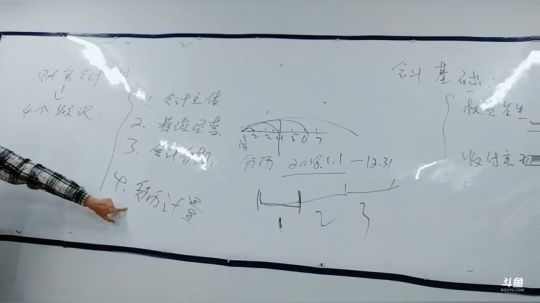 财务会计
4个假设:
1. 会计主体
2. 持续经营
3. 会计分期:
4. 货币计量
0 1 2 3 4 5 6 7
分历 2018.1.1—12.31
1 2 3
会计基础:
权责发生
收付实现
斗鱼
DOUYU.COM